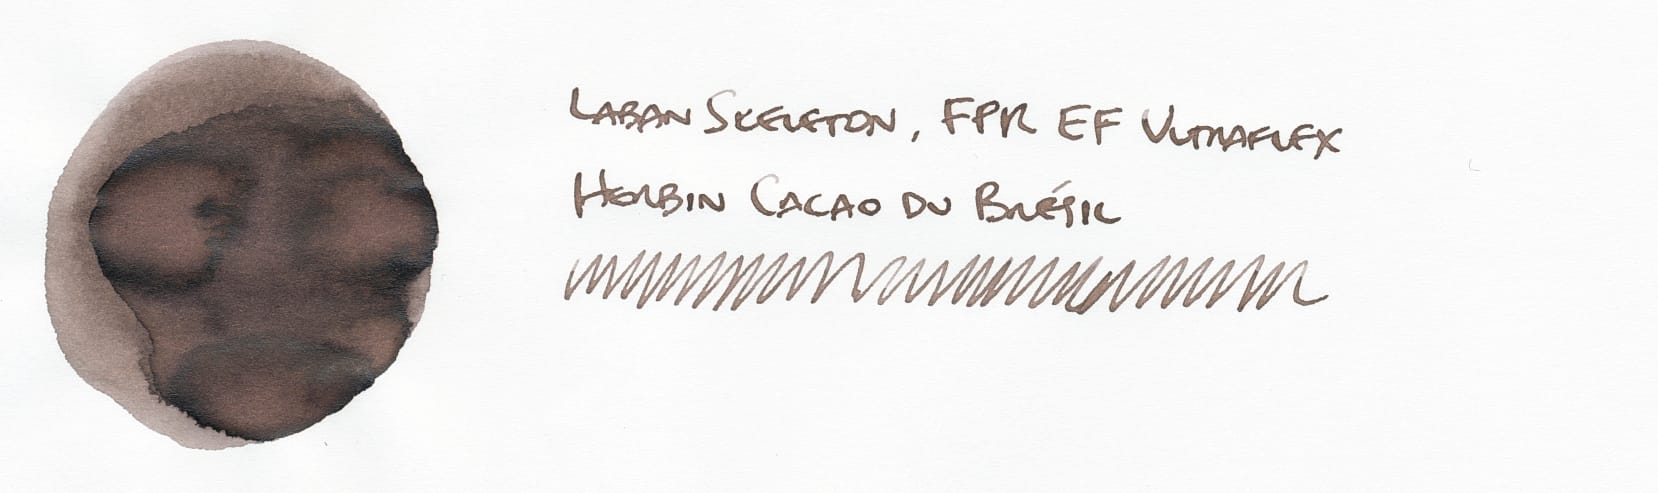 Laban Skeleton, FPR EF Ultraflex
Herbin Cacao du Brésil